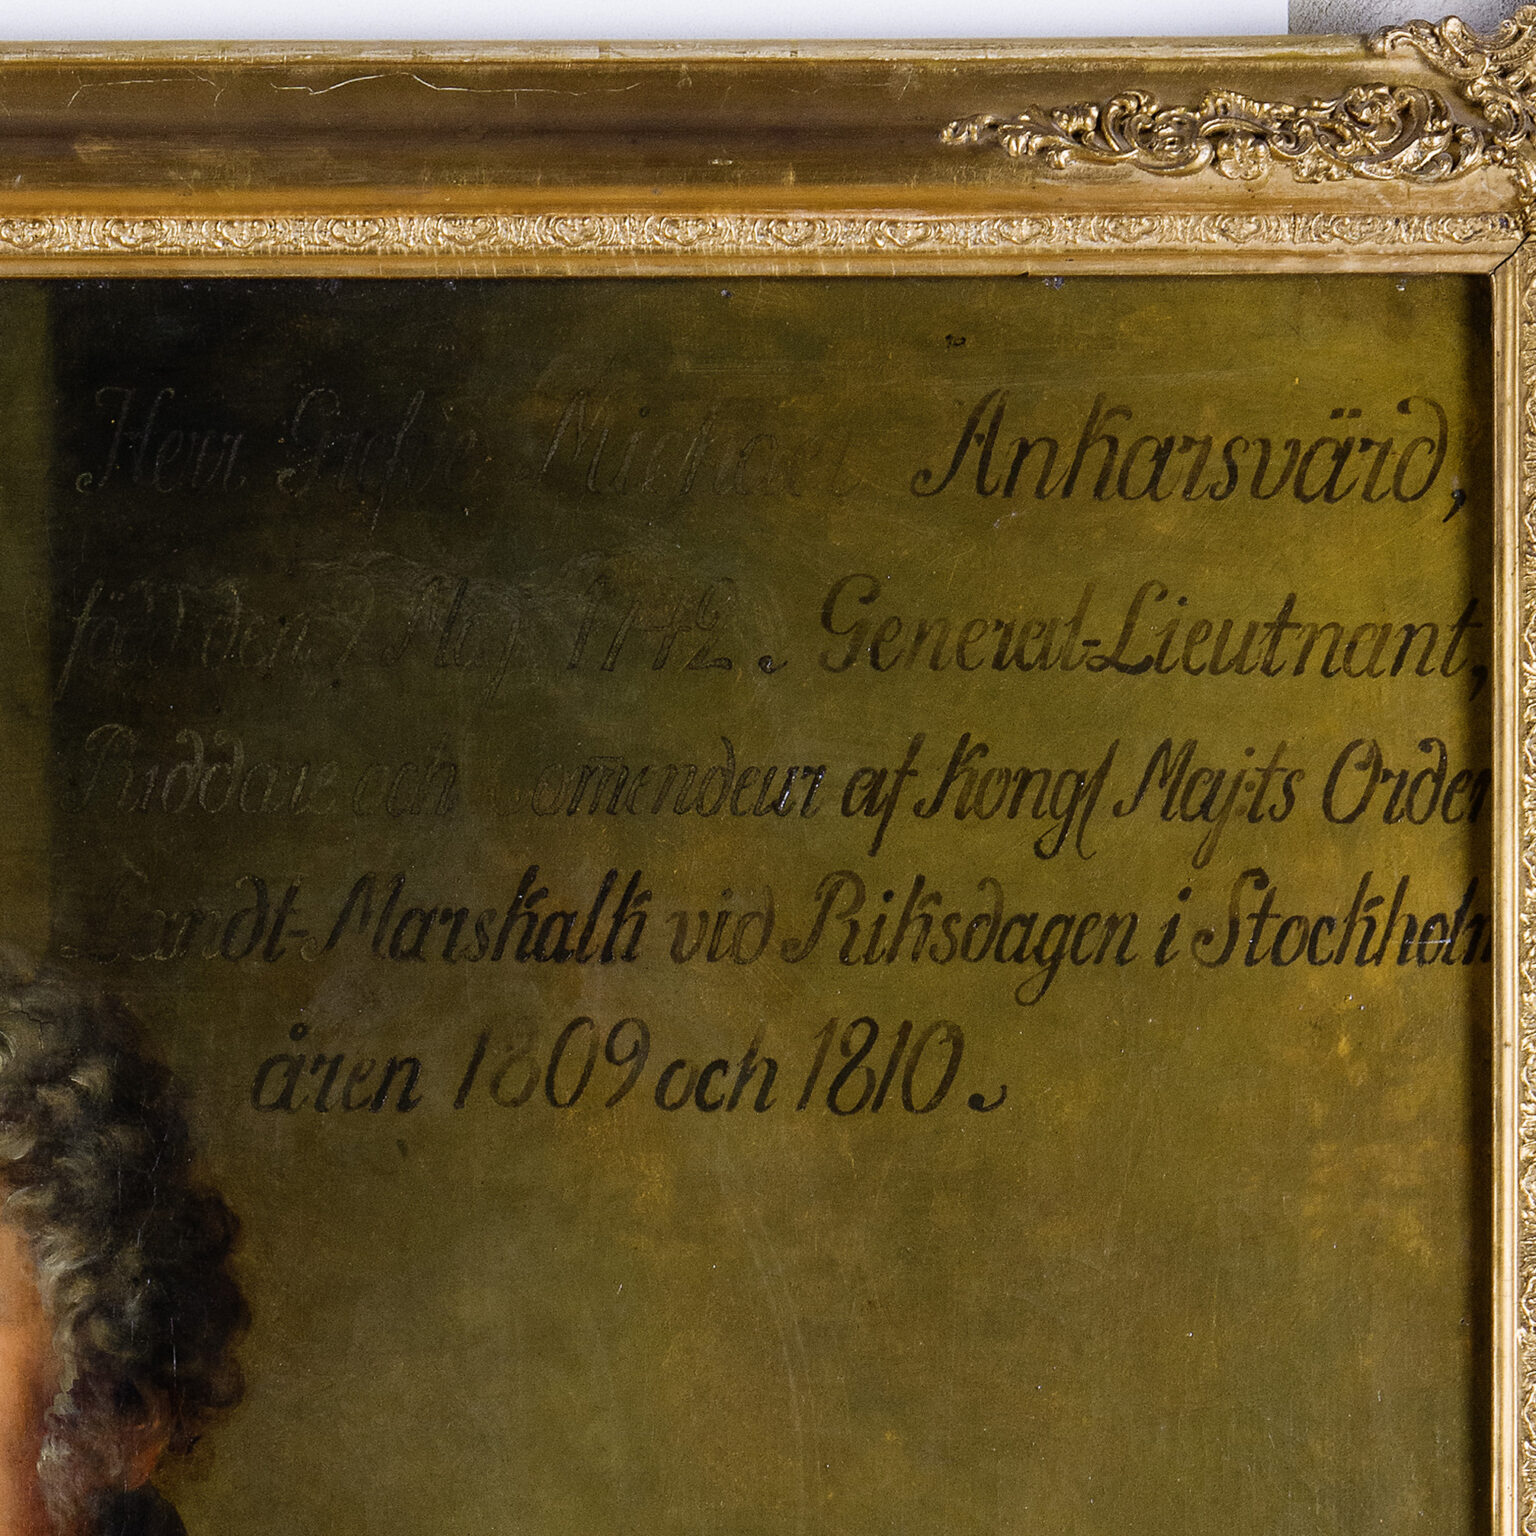 Herr Grefve Michael Ankarsvärd,
född den 7 Maij 1742. General-Lieutnant,
Riddare och Comendeur af Kongl Maj:ts Orden
Landt-Marskalk vid Riksdagen i Stockholm
åren 1809 och 1810.